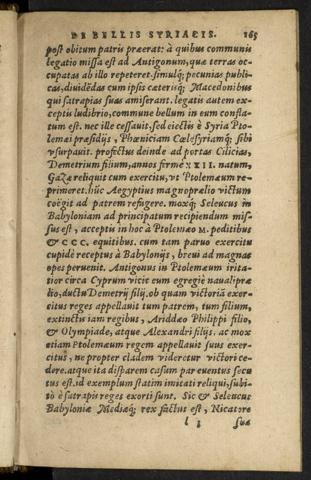 DE BELLIS SYRIACIS. 165
post obitum patris præerat: à quibus communis
legatio missa est ad Antigonum, quæ terras oc-
cupatas ab illo repeteret. simulq; pecunias publi-
cas, diuidēdas cum ipsis cæterisq; Macedonibus
qui satrapias suas amiserant. legatis autem ex-
ceptis ludibrio, commune bellum in eum confla-
tum est. nec ille cessauit. sed eiectis è Syria Pto-
lemæi præsidijs, Phœniciam Cœlesyriamq; sibi
vsurpauit. profectus deinde ad portas Cilicias,
Demetrium filium, annos fermè XXII. natum,
GaZæ reliquit cum exercitu, vt Ptolemæum re-
primeret. hūc Aegyptius magno prælio victum
coëgit ad patrem refugere. moxq; Seleucus in
Babyloniam ad principatum recipiendum mis-
sus est, acceptis in hoc à Ptolemæo M. peditibus
& CCC. equitibus. cum tam paruo exercitu
cupidè receptus à Babylonijs, breui ad magnas
opes peruenit. Antigonus in Ptolemæum irita-
tior circa Cyprum vicit eum egregiè nauali præ-
lio, ductu Demetrij filij, ob quam victoriā exer-
citus reges appellauit tum patrem, tum filium,
extinctis iam regibus, Ariddæo Philippi filio,
& Olympiade, atque Alexandri filijs. ac mox
etiam Ptolemæum regem appellauit suus exer-
citus, ne propter cladem videretur victori ce-
dere. atque ita disparem casum par euentus secu
tus est. id exemplum statim imitati reliqui, subi-
tò è satrapis reges exorti sunt. Sic & Seleucus
Babyloniæ Mediæq; rex factus est, Nicatore
l 3 suæ